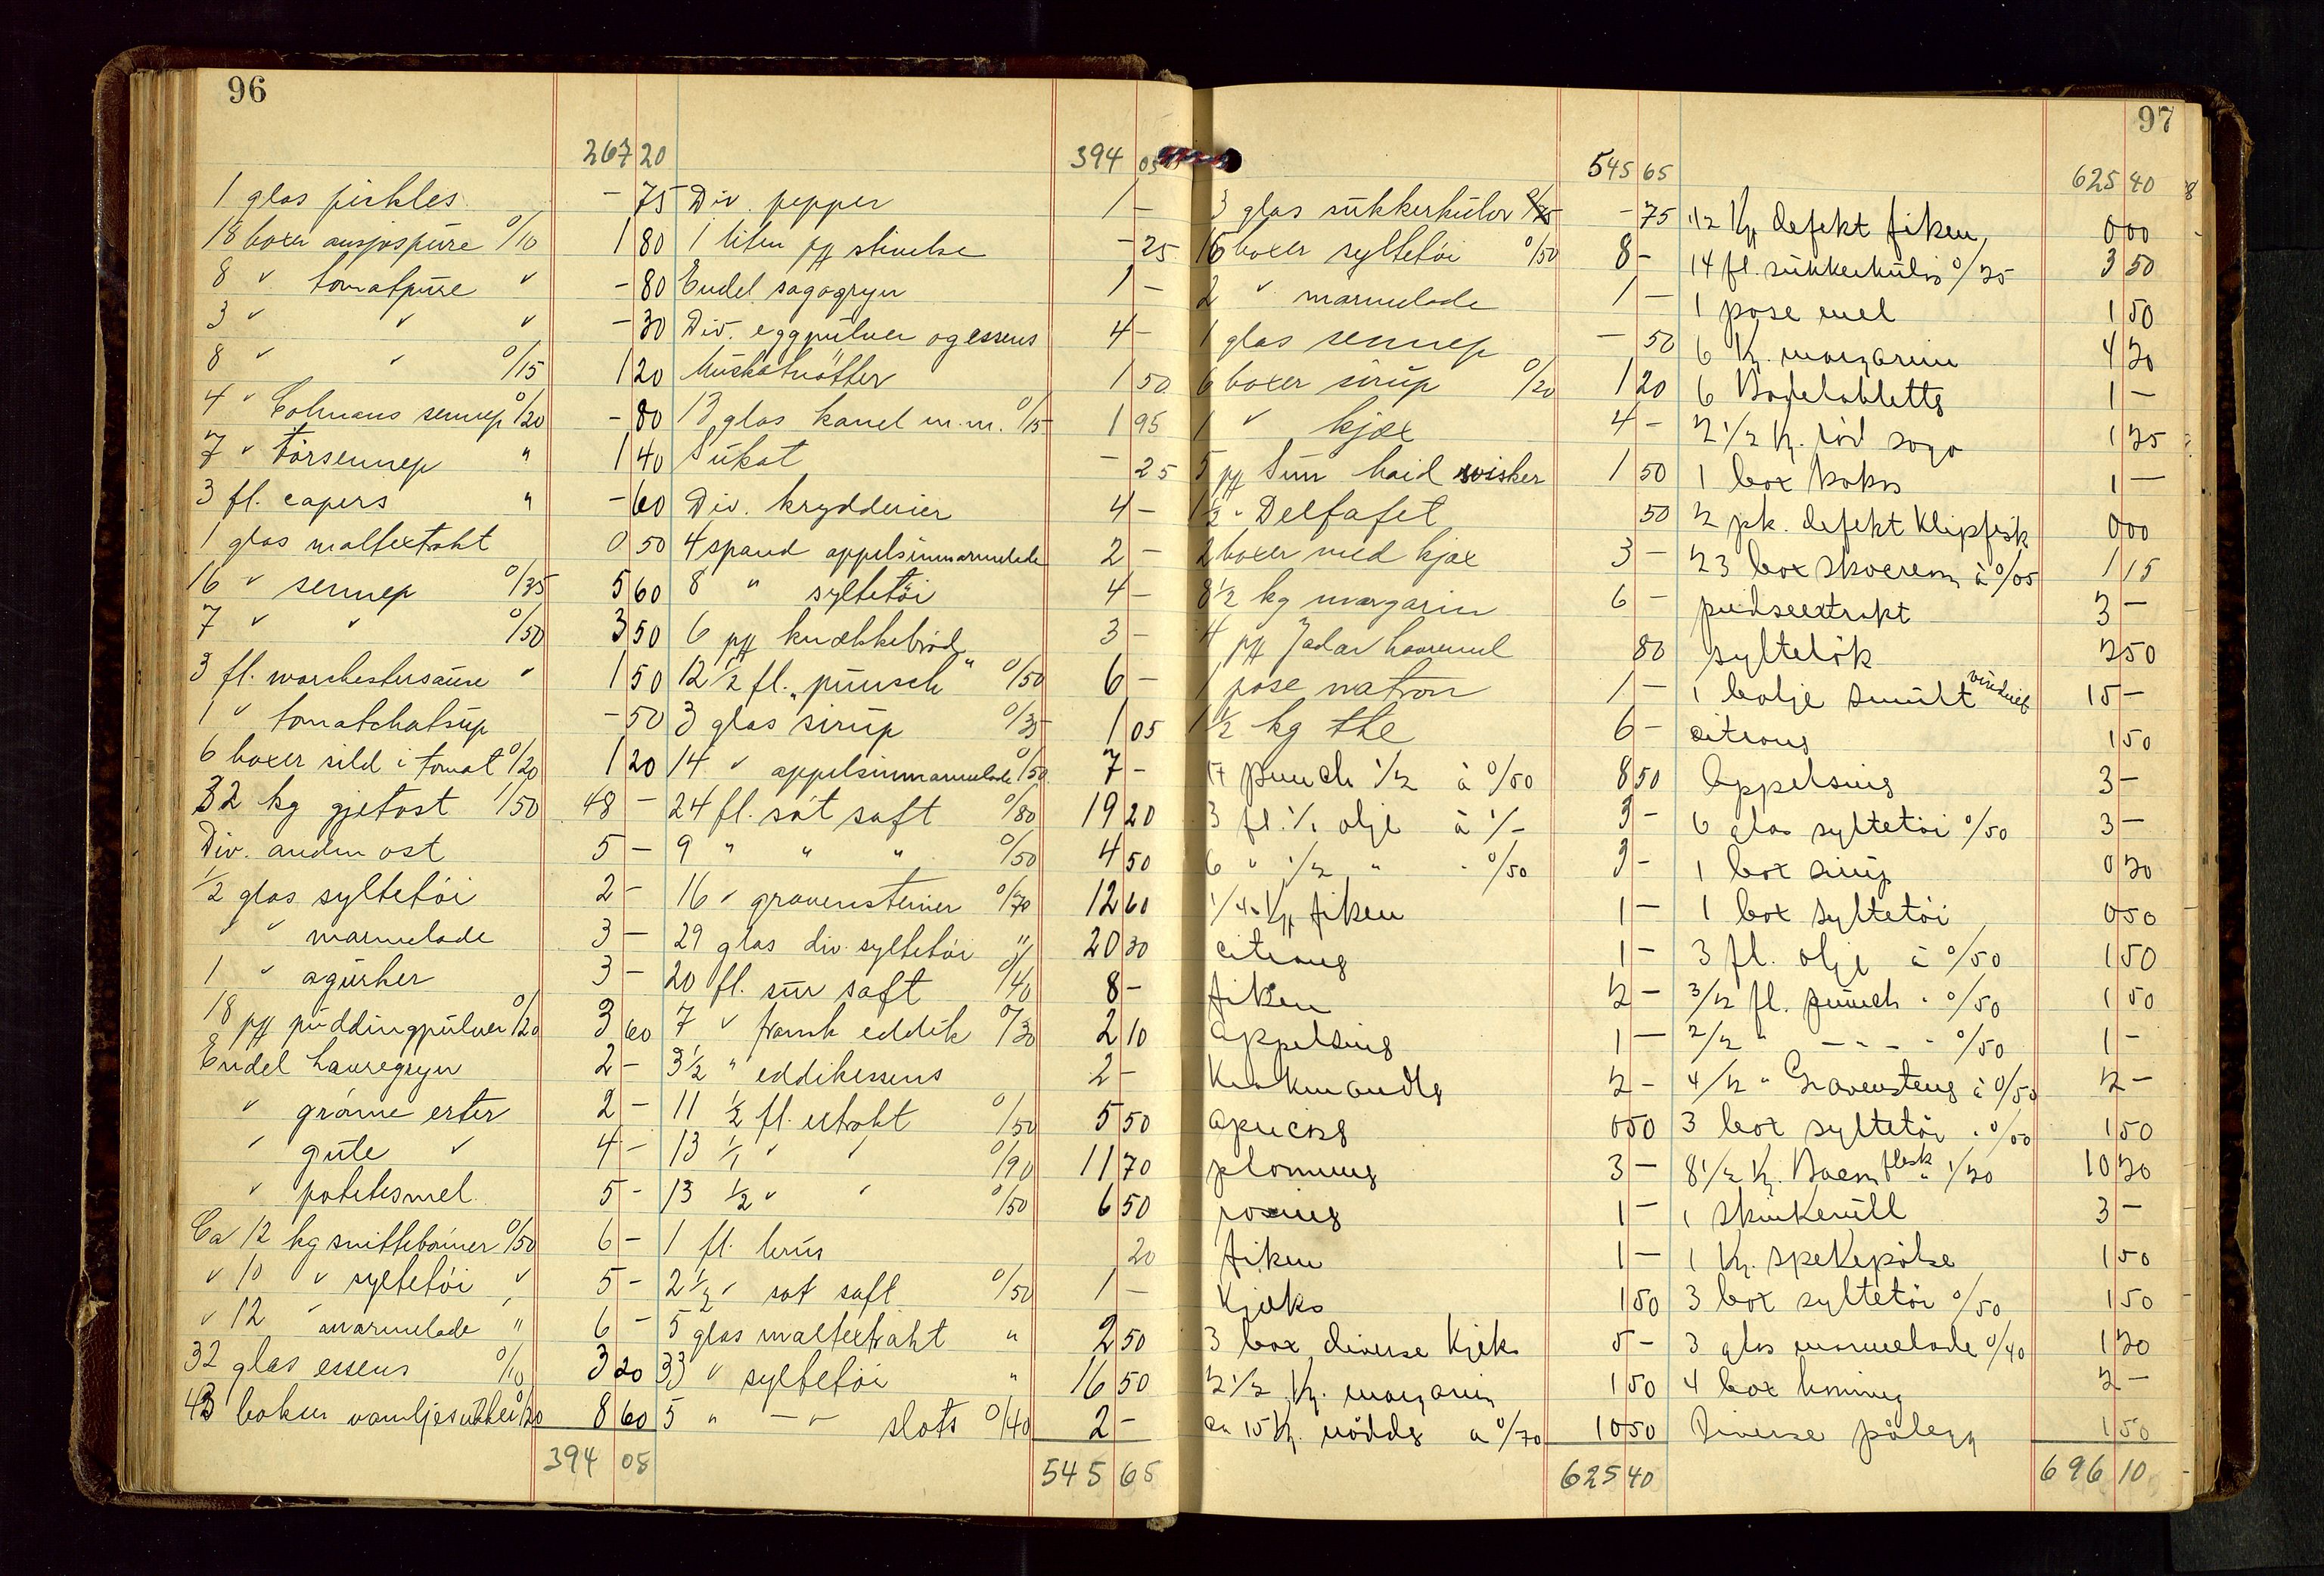 96
267 20
1 glas pickles - 75
18 boxer ansjospüre 0/10 1 80
8 " tomatpüre " - 80
3 " " " - 30
8 " " 0/15 1 20
4 " Colmans sennep 0/20 - 80
7 " törsennep " 1 40
3 fl. capers " - 60
1 glas maltextrakt 0 50
16 " sennep 0/35 5 60
7 " " 0/50 3 50
3 fl. worchestersaüse " 1 50
1 " tomatchatsüp - 50
6 boxer sild i tomat 0/20 1 20
32 kg gjetost 1/50 48 -
Div. anden ost 5 -
1/2 glas syltetöi 2 -
" " marmelade 3 -
1 " agürker 3 -
18 pk püddingpülver 0/20 3 60
Endel havregryn 2 -
" grönne erter 2 -
" güle " 4 -
" potetesmel 5 -
Ca 12 kg snittebönner 0/50 6 -
" 10 " syltetöi " 5 -
" 12 " marmelade " 6 -
32 glas essens 0/10 3 20
43 bokser vaniljesükker 0/20 8 60
394 05
394 05
Div. pepper 1 -
1 liten pk stivelse - 25
Endel sagogryn 1 -
Div. eggpülver og essens 4 -
Müskatnötter 1 50
13 glas kanel m.m. 0/15 1 95
Sükat - 25
Div. krydderier 4 -
4 spand appelsinmarmelade 2 -
8 " syltetöi 4 -
6 pk knækkebröd 3 -
12 1/2 fl. pünsch " 0/50 6 -
3 glas sirüp 0/35 1 05
14 " appelsinmarmelade 0/50 7 -
24 fl. söt saft 0/80 19 20
9 " " " 0/50 4 50
16 " gravensteiner 0/70 12 60
29 glas div. syltetöi " 20 30
20 fl. sür saft 0/40 8 -
7 " fransk eddik 0/30 2 10
3 1/2 " eddikessens 2 -
11 1/2 fl. extrakt 0/50 5 50
13 1/1 " " 0/90 11 70
13 1/2 " " 0/50 6 50
1 fl. brüs 20
2 1/2 " söt saft 0/50 1 -
5 glas maltextrakt " 2 50
33 " syltetöi " 16 50
5 " - " - slots 0/40 2 -
545 65
97
545 65
3 glas sükkerkülör 0/25 - 75
16 boxer syltetöi 0/50 8 -
2 " marmelade 1 -
1 glas sennep - 50
6 boxer sirüp 0/20 1 20
1 " kjæx 4 -
5 pk Sün haid wisker 1 50
1/2 " Delfafet 50
2 boxer med kjæx 3 -
8 1/2 kg margarin 6 -
4 pk Jadar havremel 80
1 pose natron 1 -
1 1/2 kg the 6 -
17 punch 1/2 à 0/50 8 50
3 fl. 1/1 olje à 1/- 3 -
6 " 1/2 " " 0/50 3 -
1/4 Kg fiken 1 -
citrong 1 -
fiken 2 -
appelsing 1 -
Krakmandlg 2 -
apricosg 0 50
plommeg 3 -
rosing 1 -
fiken 1 -
Kjæks 1 50
3 box diverse Kjeks 5 -
2 1/2 Kg. margarin 1 50
ca 15 Kg. nöddg a 0/70 10 50
625 40
625 40
1/2 Kg defekt fiken 0 00
14 fl. sükkerkülör 0/25 3 50
1 pose mel 1 50
6 Kg. margarin 4 20
6 Badetabletts 1 -
2 1/2 Kg. röd sago 1 25
1 box kokos 1 -
2 pk. defekt Klipfisk 0 00
23 box skocrem à 0/05 1 15
pudseextrakt 3 -
syltelök 2 50
1 bolje Smült vindrüef 15 -
citrong 1 50
Appelsing 3 -
6 glas syltetöi 0/50 3 -
1 box sirüp 0 20
1 box syltetöi 0 50
3 fl. olje à 0/50 1 50
3/2 fl. punch " 0/50 1 50
2/2 " - - - " 0/50 1 -
4/2 " Gravensteng à 0/50 2 -
3 box syltetöi " 0/50 1 50
8 1/2 Kg. Bacon flesk à 1/20 10 20
1 skinkerüll 3 -
1 Kg. spekepölse 1 50
3 box syltetöi 0/50 1 50
3 glas marmelade 0/40 1 20
4 box honning 2 -
Diverse pålegg 1 50
696 10